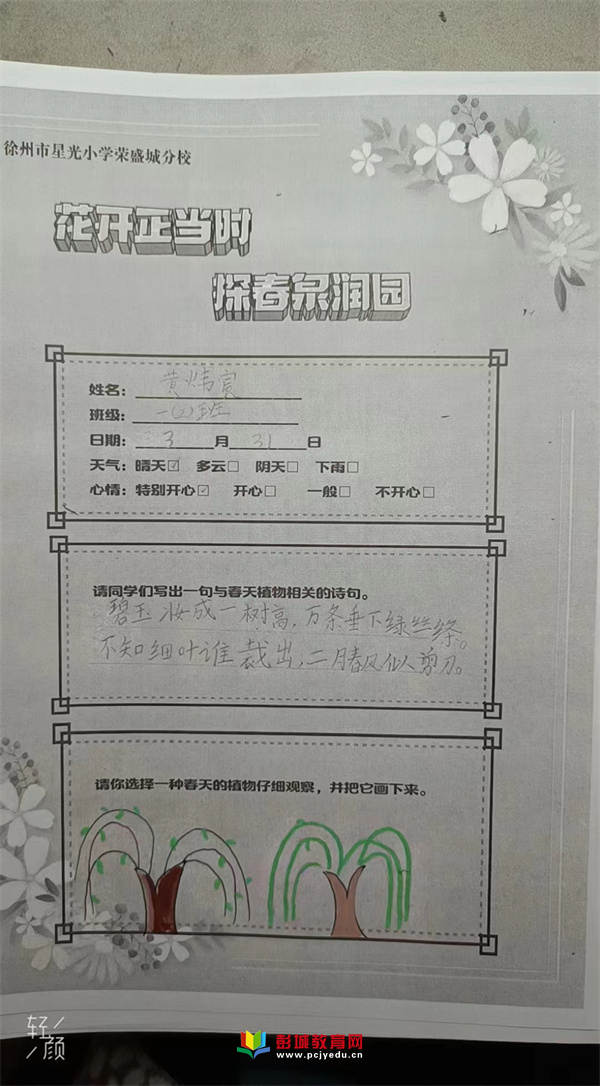 徐州市星光小学荣盛城分校
花开正当时
探春泉润园
姓名：黄炜宸
班级：一(2)班
日期：3月31日
天气：晴天☑ 多云☐ 阴天☐ 下雨☐
心情：特别开心☑ 开心☐ 一般☐ 不开心☐
请同学们写出一句与春天植物相关的诗句。
碧玉妆成一树高，万条垂下绿丝绦。
不知细叶谁裁出，二月春风似剪刀。
请你选择一种春天的植物仔细观察，并把它画下来。
轻颜
彭城教育网
www.pcjyedu.cn